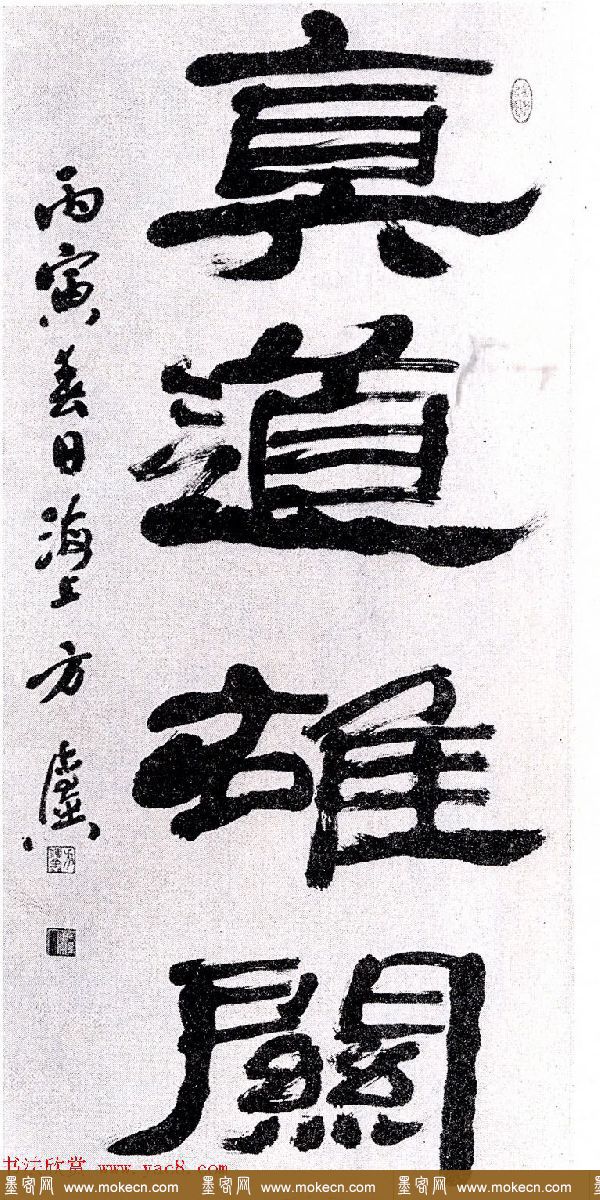 真道雄關
丙寅春日海上方虞
书法欣赏 www.yac8.com
墨客网 www.mokecn.com 墨客网 www.mokecn.com 墨客网 www.mokecn.com 墨客网 www.mokecn.com